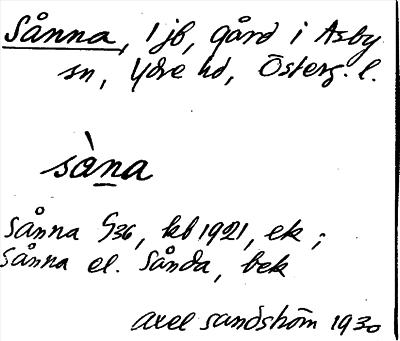 Sånna, 1 jb, gård i Asby
sn, Ydre hd, Österg. l.
sàna
Sånna G36, kb 1921, ek;
Sånna el. Sånda, bek
Axel Sandström 1930